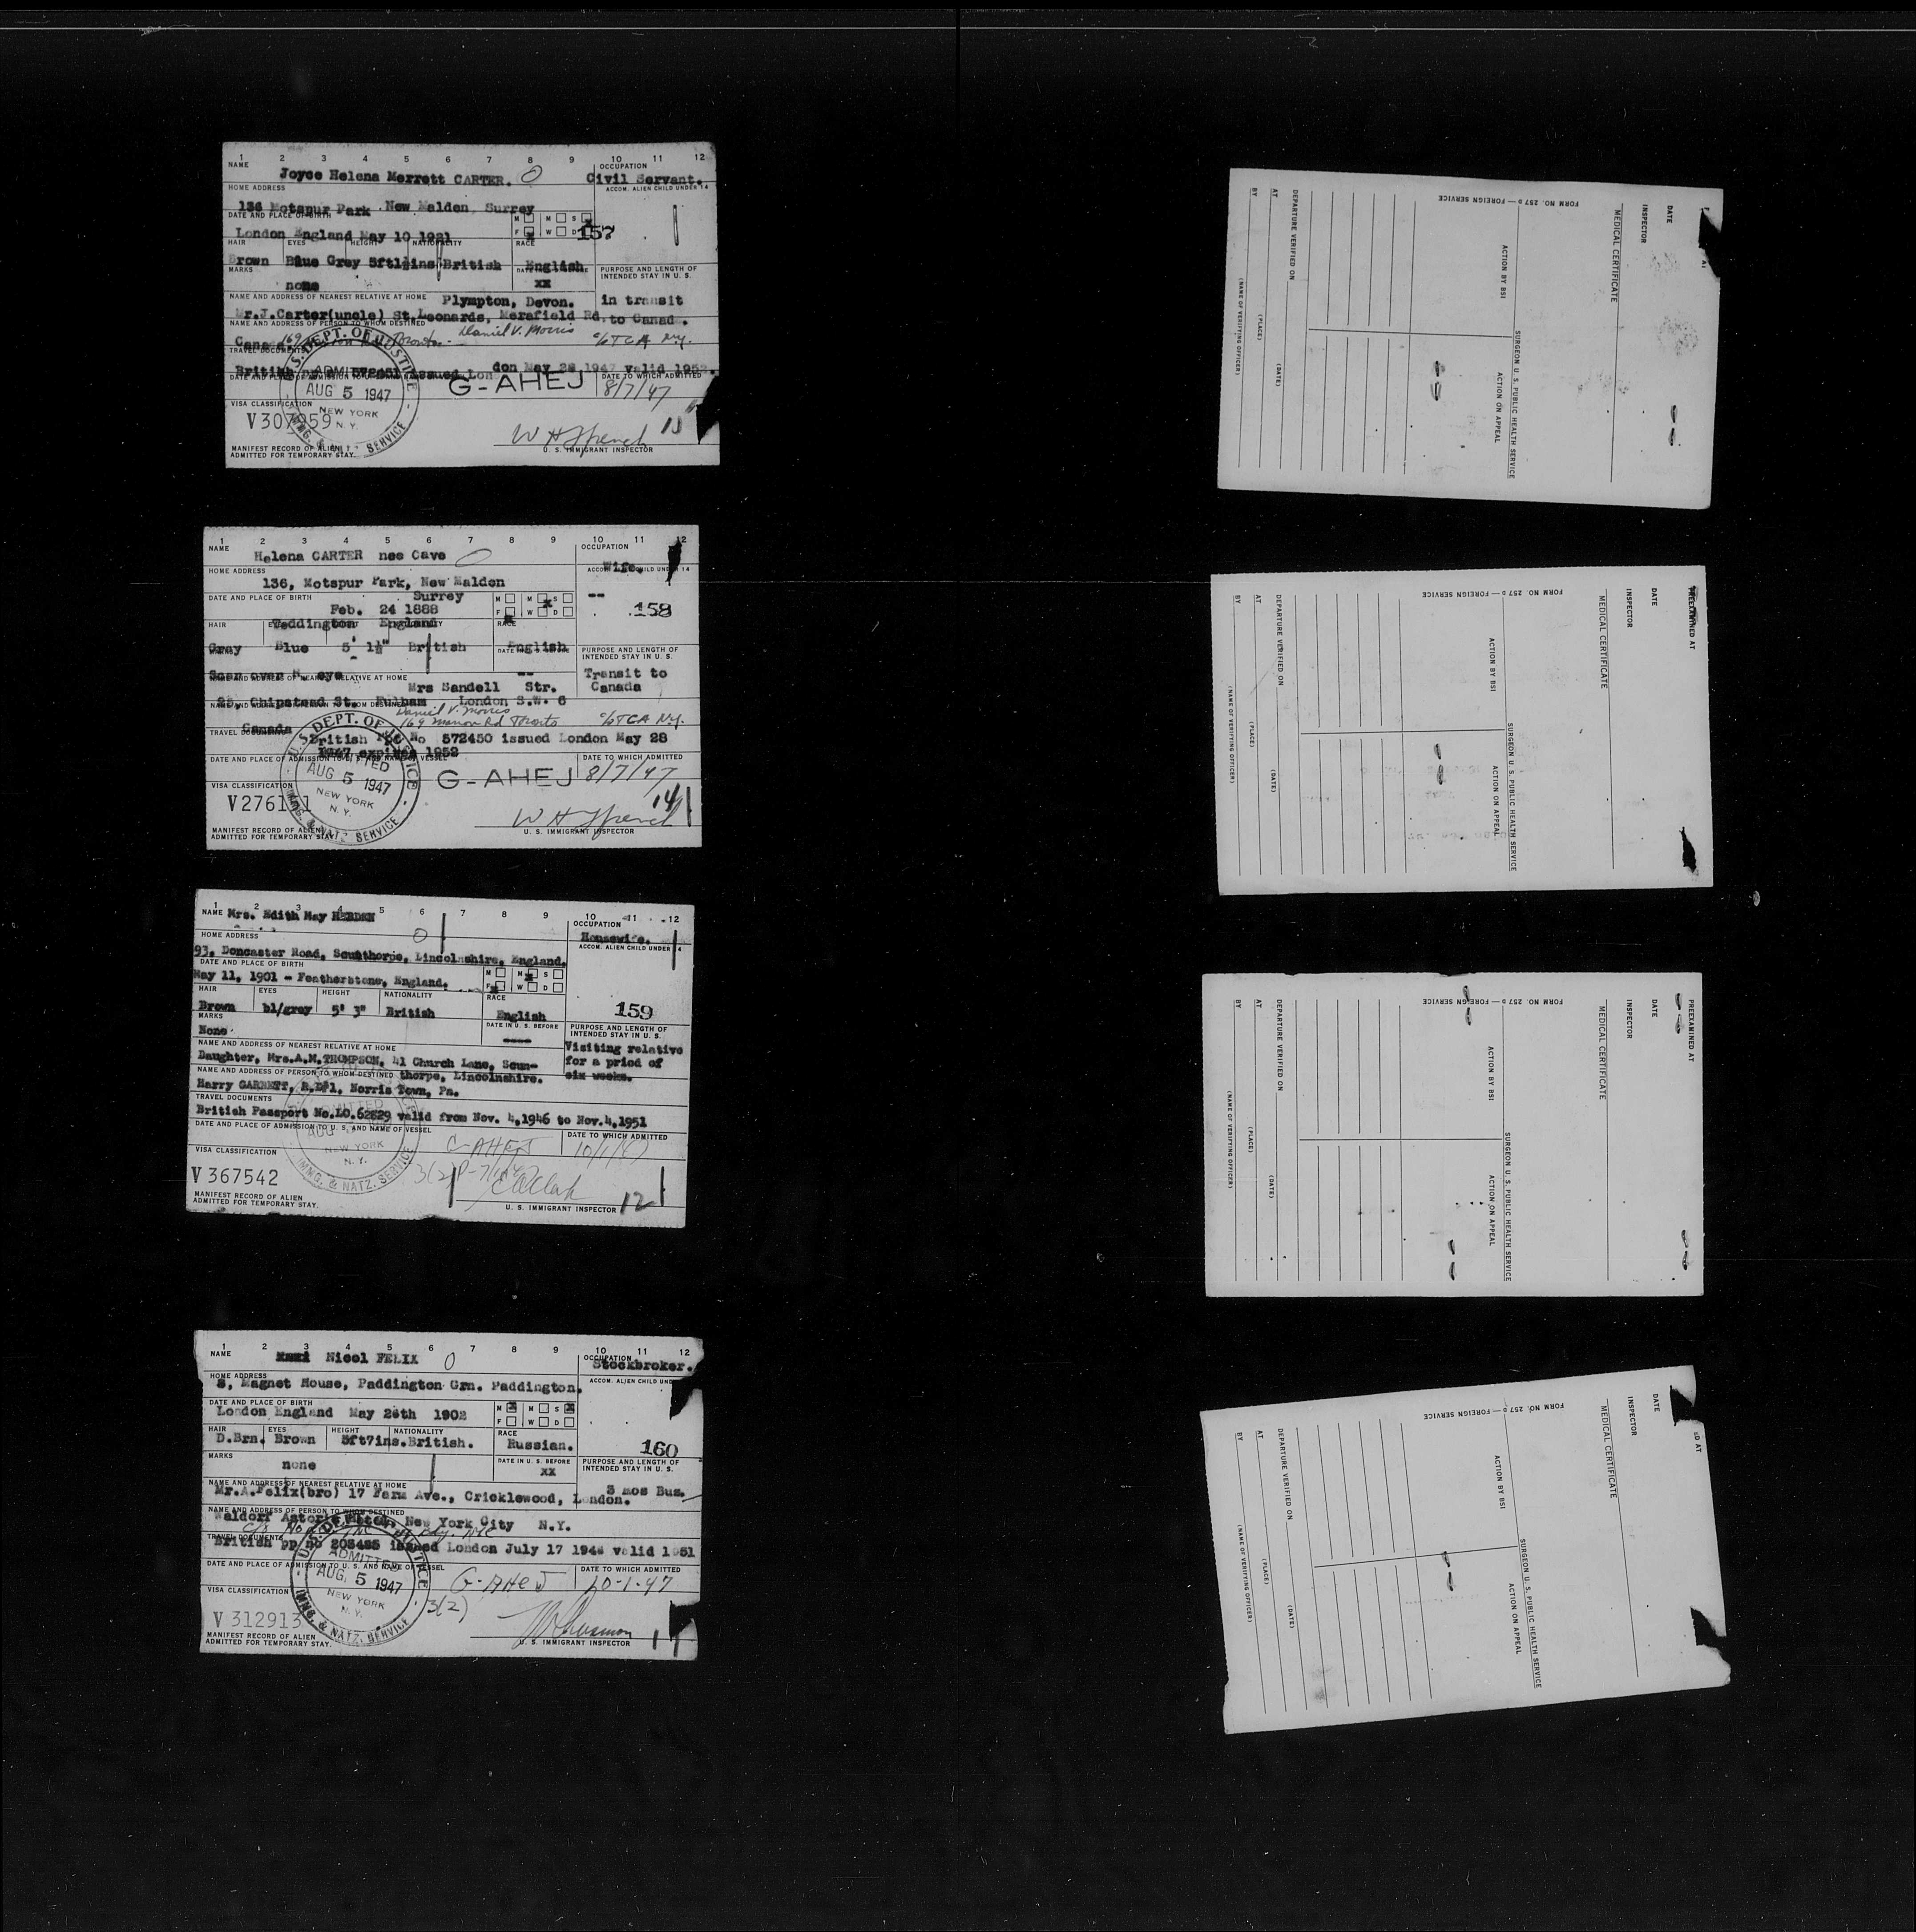 1 2 3 4 5 6 7 8 9 10 11 12
NAME OCCUPATION
Joyce Helena Merrett CARTER. O Civil Servant.
HOME ADDRESS ACCOM. ALIEN CHILD UNDER 14
136 Motspur Park New Malden Surrey
DATE AND PLACE OF BIRTH M M S
London England May 10 1921 F W D 157
HAIR EYES HEIGHT NATIONALITY RACE
Brown Blue Grey 5ft1½ins British English
MARKS PURPOSE AND LENGTH OF INTENDED STAY IN U. S.
none xx
NAME AND ADDRESS OF NEAREST RELATIVE AT HOME Plympton, Devon. in transit
Mr.J.Carter(uncle) St.Leonards, Merafield Rd. to Canad .
NAME AND ADDRESS OF PERSON TO WHOM DESTINED Daniel V. Morris
Canada 169 Rd. Toronto. c/o TCA N.Y.
TRAVEL DOCUMENTS
British issued London May 28 1947 valid 1952.
DATE TO WHICH ADMITTED
U.S. DEPT. OF JUSTICE
ADMITTED
AUG 5 1947
NEW YORK
N. Y.
IMMG. & SERVICE
G-AHEJ 8/7/47
VISA CLASSIFICATION
V307959
W H French
U. S. IMMIGRANT INSPECTOR
MANIFEST RECORD OF ALIEN
ADMITTED FOR TEMPORARY STAY.
1 2 3 4 5 6 7 8 9 10 11 12
NAME OCCUPATION
Helena CARTER nee Cave O
HOME ADDRESS Wife.
136, Motspur Park, New Maldon
DATE AND PLACE OF BIRTH Surrey M M S --
Feb. 24 1888 F W D 158
HAIR Teddington England RACE
Grey Blue 5' 1½" British English
PURPOSE AND LENGTH OF INTENDED STAY IN U. S.
Scar over R. eye -- Transit to
Mrs Sandell Str. Canada
25, Chipstead St. Fulham London S.W. 6
Daniel V. Morris
Canada 169 Manor Rd Toronto c/o TCA N.Y.
TRAVEL DOCUMENTS
British No 572450 issued London May 28
1947 expires 1952
DATE AND PLACE OF ADMISSION TO U. S. AND NAME OF VESSEL DATE TO WHICH ADMITTED
U.S. DEPT. OF JUSTICE
AUG 5 1947
NEW YORK
N. Y.
IMMG. & NATZ. SERVICE
G-AHEJ 8/7/47
VISA CLASSIFICATION
V276151
14
W H French
U. S. IMMIGRANT INSPECTOR
MANIFEST RECORD OF ALIEN
ADMITTED FOR TEMPORARY STAY.
1 2 3 4 5 6 7 8 9 10 11 12
NAME Mrs. Edith May HEBDEN OCCUPATION
HOME ADDRESS O Housewife.
ACCOM. ALIEN CHILD UNDER 14
93, Doncaster Road, Scunthorpe, Lincolnshire, England.
DATE AND PLACE OF BIRTH M M S
May 11, 1901 - Featherstone, England. F W D
HAIR EYES HEIGHT NATIONALITY RACE 159
Brown bl/grey 5' 3" British English
MARKS DATE IN U. S. BEFORE PURPOSE AND LENGTH OF INTENDED STAY IN U. S.
None
NAME AND ADDRESS OF NEAREST RELATIVE AT HOME Visiting relative
Daughter, Mrs.A.M.THOMPSON, 41 Church Lane, Scun- for a priod of
NAME AND ADDRESS OF PERSON TO WHOM DESTINED thorpe, Lincolnshire. six weeks.
Harry GARNETT, R.D#1, Norris Town, Pa.
TRAVEL DOCUMENTS
British Passport No.LO.62829 valid from Nov. 4,1946 to Nov.4,1951
DATE AND PLACE OF ADMISSION TO U. S. AND NAME OF VESSEL DATE TO WHICH ADMITTED
ADMITTED
AUG
NEW YORK
N. Y.
IMMG. & NATZ. SERVICE
G-AHEJ 10/1/47
VISA CLASSIFICATION
V367542
12
MANIFEST RECORD OF ALIEN
ADMITTED FOR TEMPORARY STAY.
U. S. IMMIGRANT INSPECTOR
1 2 3 4 5 6 7 8 9 10 11 12
NAME OCCUPATION
Nicol FELIX O Stockbroker.
HOME ADDRESS ACCOM. ALIEN CHILD
8, Magnet House, Paddington Grn. Paddington.
DATE AND PLACE OF BIRTH M M S
London England May 26th 1902 F W D
HAIR EYES HEIGHT NATIONALITY RACE
D.Brn. Brown 5ft7ins.British. Russian. 160
MARKS DATE IN U. S. BEFORE PURPOSE AND LENGTH OF INTENDED STAY IN U. S.
none xx
NAME AND ADDRESS OF NEAREST RELATIVE AT HOME 3 mos Bus.
Mr.A.Felix(bro) 17 Farm Ave., Cricklewood, London.
NAME AND ADDRESS OF PERSON TO WHOM DESTINED
Waldorf Astoria Hotel, New York City N.Y.
TRAVEL DOCUMENTS
British pp no 208485 issued London July 17 1946 valid 1951
DATE AND PLACE OF ADMISSION TO U. S. AND NAME OF VESSEL DATE TO WHICH ADMITTED
U.S. DEPT. OF JUSTICE
ADMITTED
AUG. 5 1947
NEW YORK
N. Y.
IMMG. & NATZ. SERVICE
G-AHEJ 10-1-47
VISA CLASSIFICATION 3(2)
V 312913
MANIFEST RECORD OF ALIEN
ADMITTED FOR TEMPORARY STAY.
U. S. IMMIGRANT INSPECTOR
DATE
INSPECTOR
MEDICAL CERTIFICATE
SURGEON U. S. PUBLIC HEALTH SERVICE
ACTION BY BSI
ACTION ON APPEAL
FORM NO. 257 D — FOREIGN SERVICE
DEPARTURE VERIFIED ON
(DATE)
AT
(PLACE)
BY
(NAME OF VERIFYING OFFICER)
PREEXAMINED AT
DATE
INSPECTOR
MEDICAL CERTIFICATE
SURGEON U. S. PUBLIC HEALTH SERVICE
ACTION BY BSI
ACTION ON APPEAL
FORM NO. 257 D — FOREIGN SERVICE
DEPARTURE VERIFIED ON
(DATE)
AT
(PLACE)
BY
(NAME OF VERIFYING OFFICER)
PREEXAMINED AT
DATE
INSPECTOR
MEDICAL CERTIFICATE
SURGEON U. S. PUBLIC HEALTH SERVICE
ACTION BY BSI
ACTION ON APPEAL
FORM NO. 257 D — FOREIGN SERVICE
DEPARTURE VERIFIED ON
(DATE)
AT
(PLACE)
BY
(NAME OF VERIFYING OFFICER)
DATE
INSPECTOR
MEDICAL CERTIFICATE
SURGEON U. S. PUBLIC HEALTH SERVICE
ACTION BY BSI
ACTION ON APPEAL
FORM NO. 257 D — FOREIGN SERVICE
DEPARTURE VERIFIED ON
(DATE)
AT
(PLACE)
BY
(NAME OF VERIFYING OFFICER)